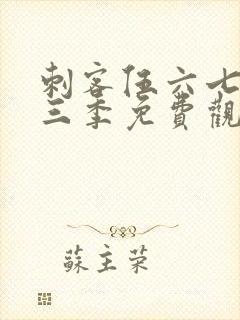 刺客伍六七
三季免費觀
蘇主荣